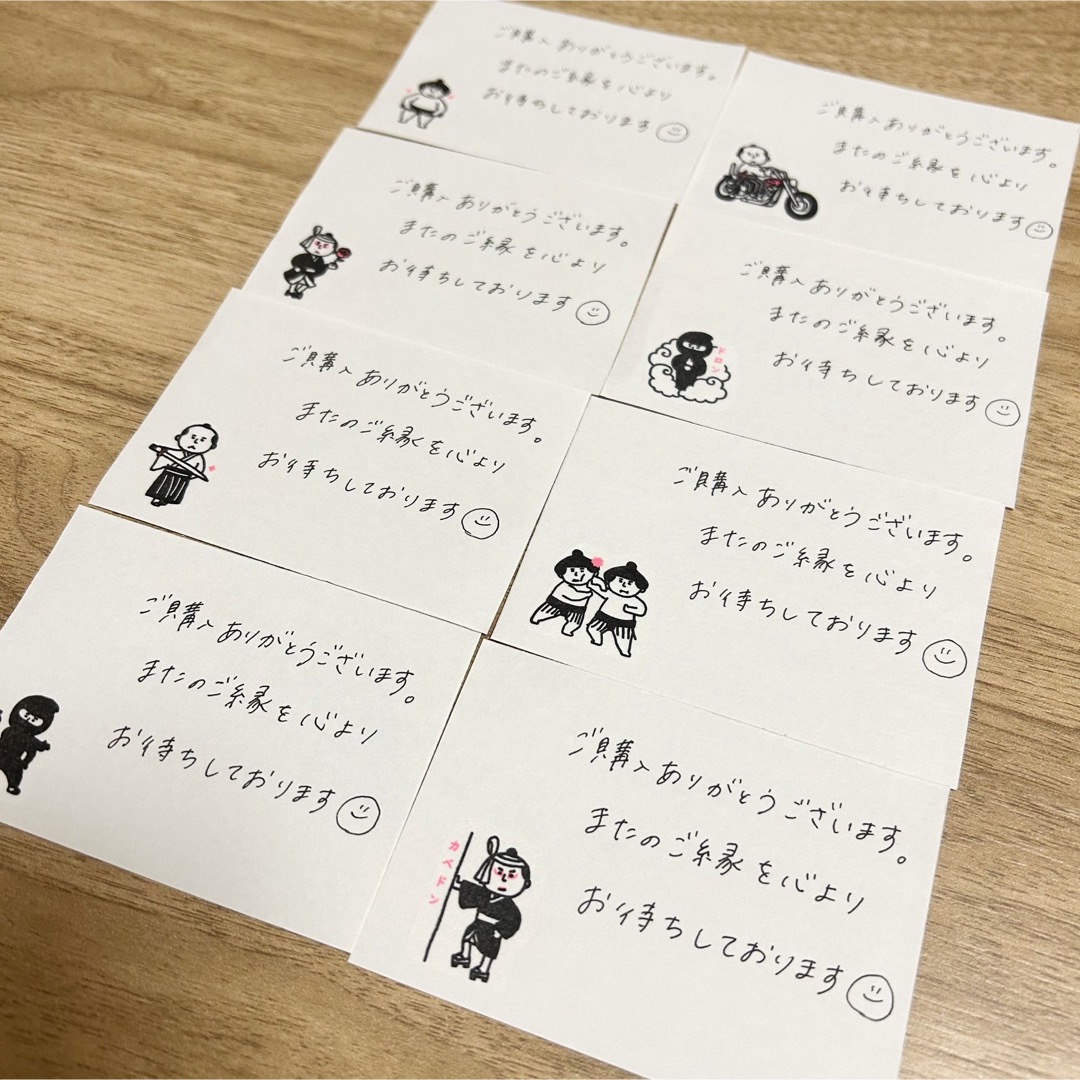 ご購入ありがとうございます。
またのご縁を心より
お待ちしております
ご購入ありがとうございます。
またのご縁を心より
お待ちしております
ご購入ありがとうございます。
またのご縁を心より
お待ちしております
ドロン
ご購入ありがとうございます。
またのご縁を心より
お待ちしております
ご購入ありがとうございます。
またのご縁を心より
お待ちしております
ご購入ありがとうございます。
またのご縁を心より
お待ちしております
ご購入ありがとうございます。
またのご縁を心より
お待ちしております
カベドン
ご購入ありがとうございます。
またのご縁を心より
お待ちしております